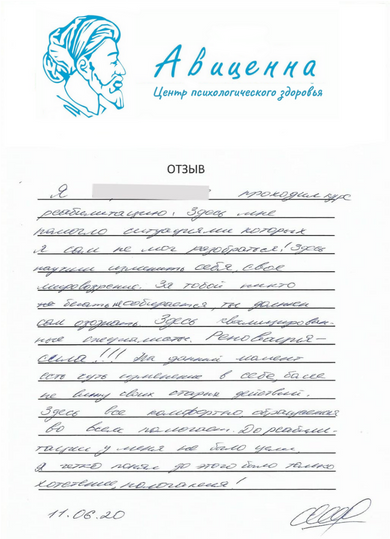 Авиценна
Центр психологического здоровья
ОТЗЫВ
Я проходил курс
реабилитацию. Здесь мне
помогло ситуациями которых
я сам не мог разобраться! Здесь
научили изменить себя, свое
мировозрение. За тобой никто
не бегать не собирается ты должен
сам Здесь
специалисты. Реновация-
сила!!! На данный момент
есть суть изменение в себе, боле
не вижу своих старых действий.
Здесь все комфортно, обращаются
во всем помогают. До реабили-
тации у меня не было цели
я четко понял до этого было только
хотетение,
11.06.20